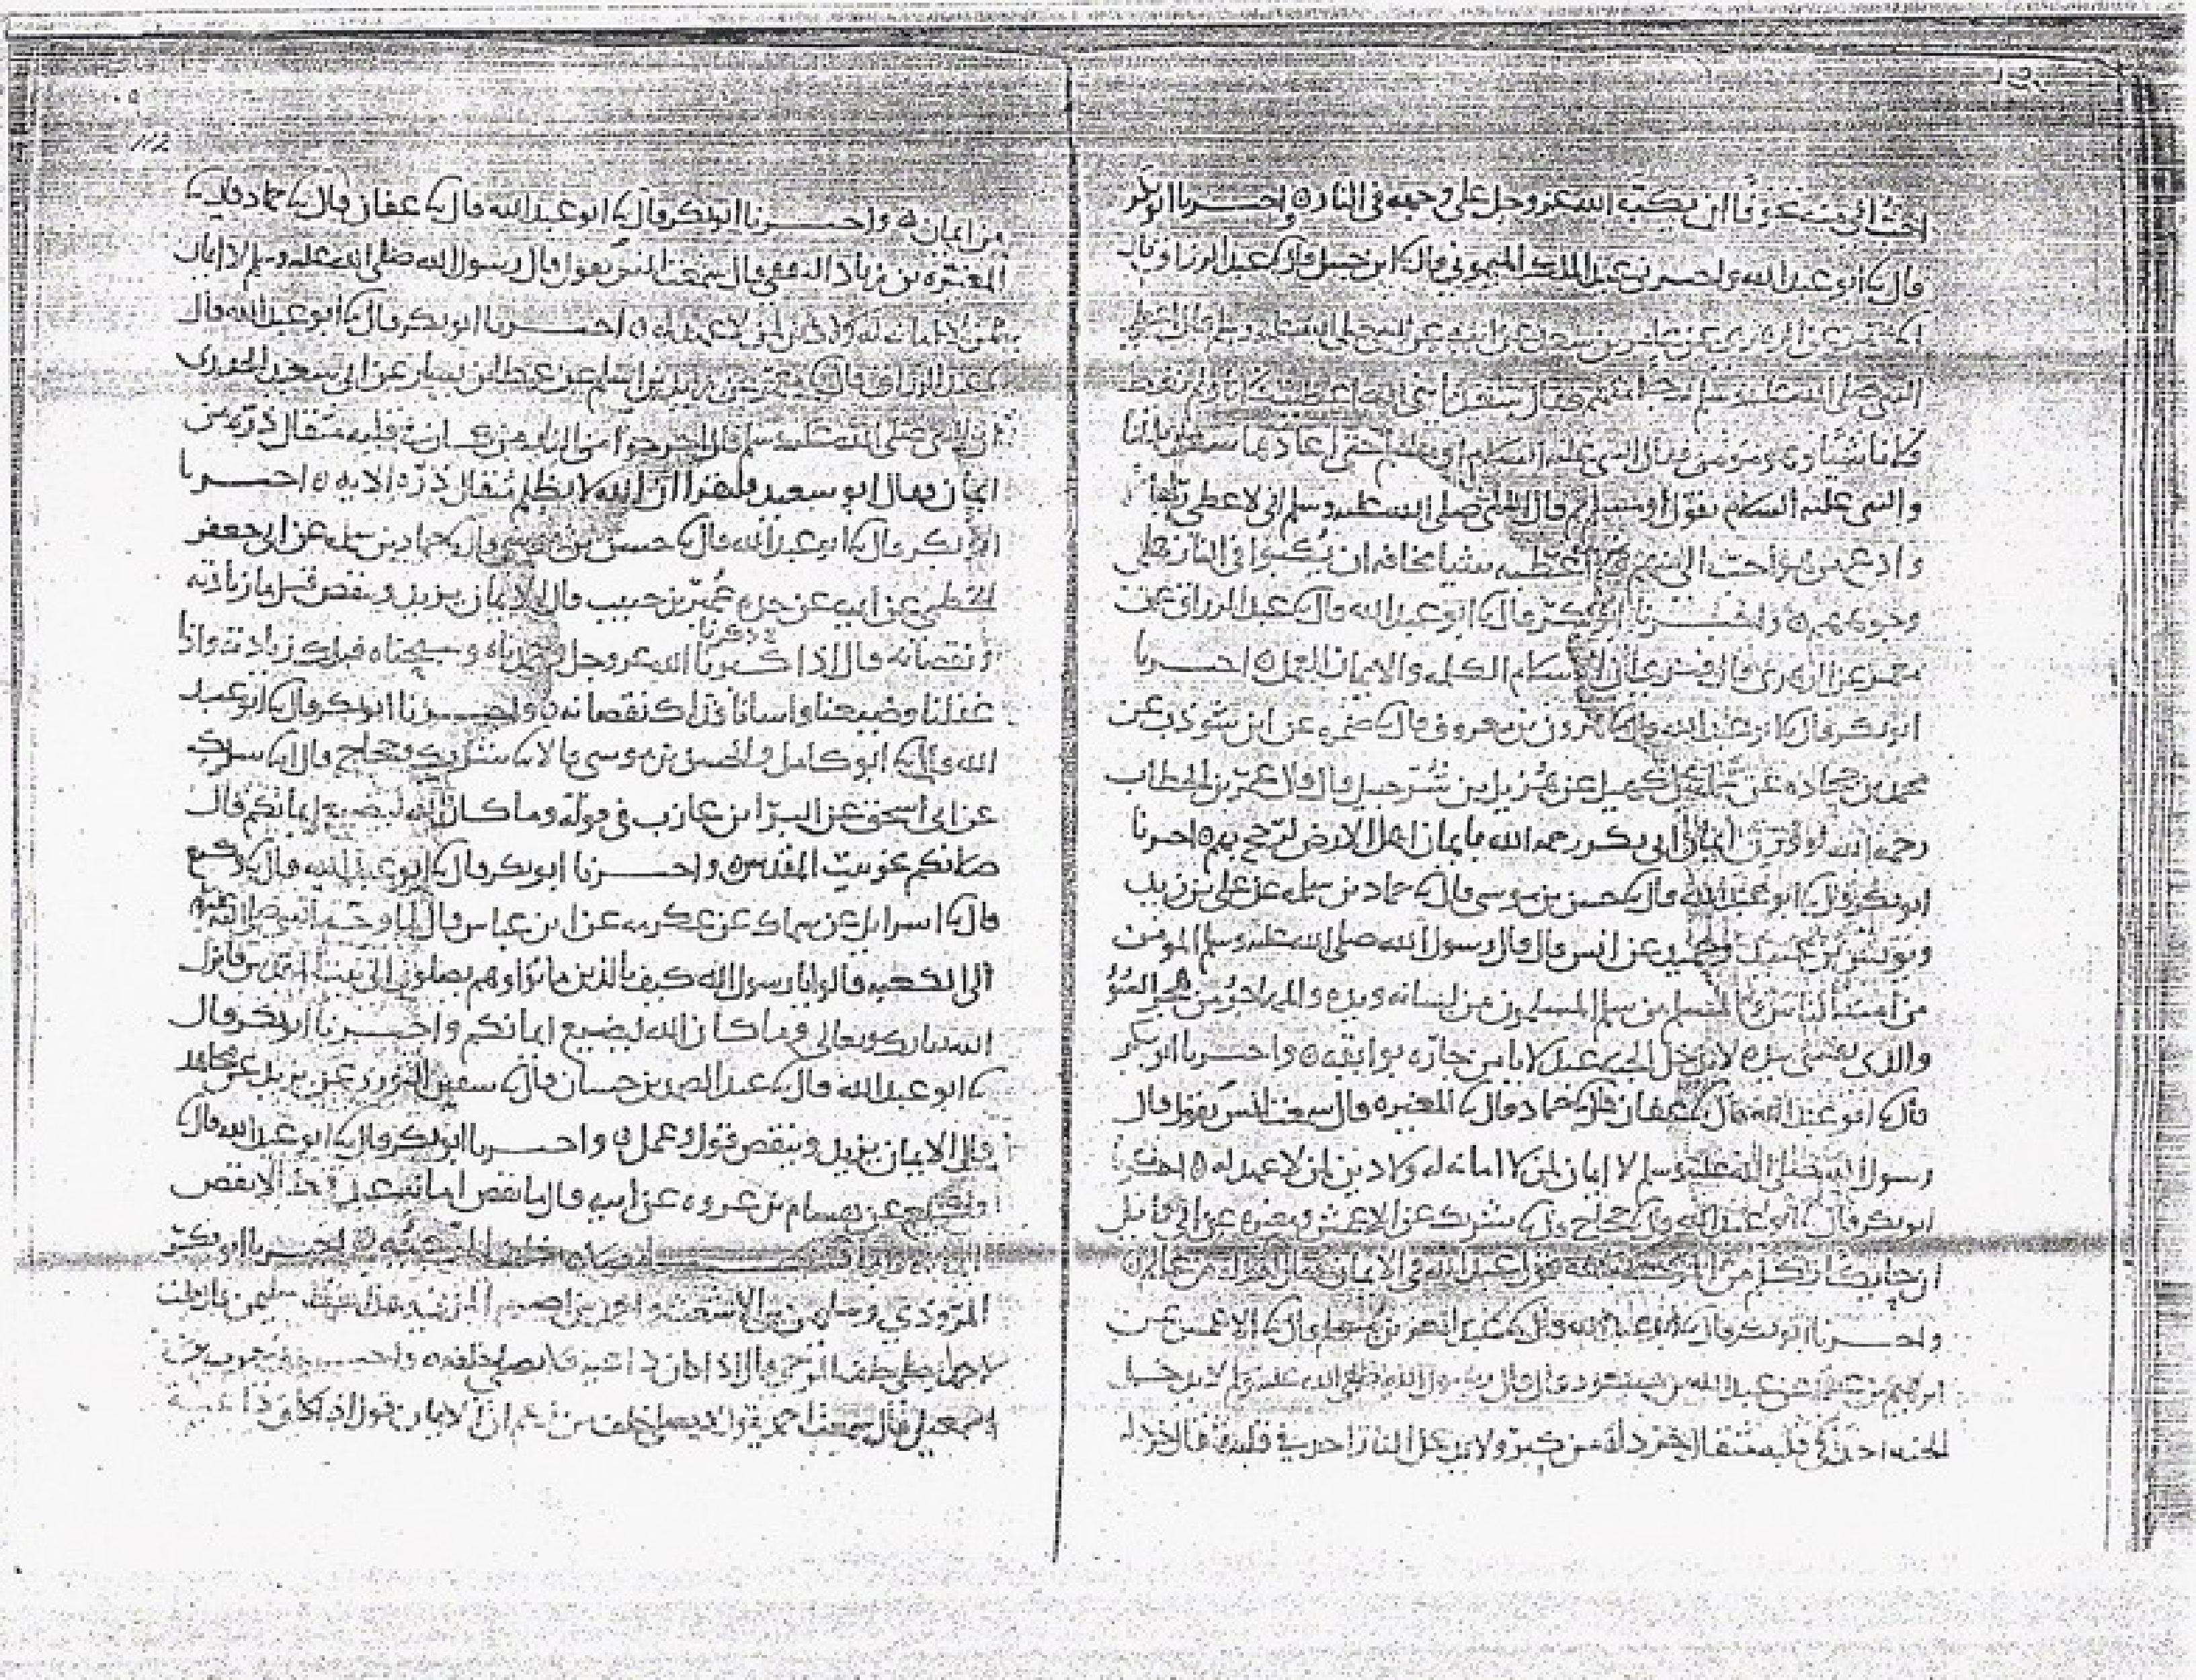 احب الي منه خوفا ان يكبه الله عز وجل على وجهه في النار ه واخبرنا ابو بكر
قال ثنا ابو عبد الله واخبرني عبد الملك الميموني قال ثنا ابن حنبل قال ثنا عبد الرزاق قال
ثنا معمر عن الزهري عن عامر بن سعد عن ابيه عن النبي صلى الله عليه وسلم قال اعطى
النبي صلى الله عليه وسلم رجالا فقال سعد يا نبي الله اعطيت فلانا ولم تعط
فلانا شيئا وهو مومن فقال النبي عليه السلام او مسلم حتى اعادها سعد ثلثا
والنبي عليه السلام يقول او مسلم ثم قال النبي صلى الله عليه وسلم اني لاعطي رجالا
وادع من هو احب الي منهم فلا اعطيه شيا مخافه ان يكبوا في النار على
وجوههم ه واخبرنا ابو بكر قال ثنا ابو عبد الله قال ثنا عبد الرزاق عن
معمر عن الزهري قال فنرى ان الاسلام الكلمه والايمان العمل ه اخبرنا
ابو بكر قال ثنا ابو عبد الله قال ثنا هرون بن معروف قال ثنا ضمره عن ابن شوذب عن
محمد بن جحاده عن سلمه بن كهيل عن هزيل بن شرحبيل قال قال عمر بن الخطاب
رحمه الله لو وزن ايمان ابي بكر رحمه الله بايمان اهل الارض لرجح بهم ه اخبرنا
ابو بكر قال ثنا ابو عبد الله قال ثنا حسن بن موسى قال ثنا حماد بن سلمه عن علي بن زيد
ويونس بن عبيد وحميد عن انس قال قال رسول الله صلى الله عليه وسلم المومن
من امنه الناس والمسلم من سلم المسلمون من لسانه ويده والمهاجر من هجر السو
والذي نفسي بيده لا يدخل الجنه عبد لا يامن جاره بوايقه ه واخبرنا ابو بكر
قال ثنا ابو عبد الله قال ثنا عفان قال ثنا حماد قال ثنا المغيره قال سمعت انس يقول قال
رسول الله صلى الله عليه وسلم لا ايمان لمن لا امانه له ولا دين لمن لا عهد له ه اخبرنا
ابو بكر قال ثنا ابو عبد الله قال ثنا حجاج قال ثنا شريك عن الاعمش ومغيره عن ابي وايل
واخبرنا ابو بكر قال ثنا ابو عبد الله قال ثنا عبد العزيز بن مسلم قال ثنا الاعمش عن
ابرهيم عن علقمه عن عبد الله بن مسعود قال قال رسول الله صلى الله عليه وسلم لا يدخل
الجنه احد في قلبه مثقال خردله من كبر ولا يدخل النار احد في قلبه مثقال خردله
من ايمان ه واخبرنا ابو بكر قال ثنا ابو عبد الله قال ثنا عفان قال ثنا حماد قال ثنا
المغيره بن زياد الثقفي قال سمعت انس يقول قال رسول الله صلى الله عليه وسلم لا ايمان
لمن لا امانه له ولا دين لمن لا عهد له ه اخبرنا ابو بكر قال ثنا ابو عبد الله قال
ثنا عبد الرزاق قال ثنا معمر عن زيد بن اسلم عن عطا بن يسار عن ابي سعيد الخدري
ان النبي صلى الله عليه وسلم قال اخرجوا من النار من كان في قلبه مثقال ذره من
ايمان قال ابو سعيد فليقرا ان الله لا يظلم مثقال ذره الايه ه اخبرنا
ابو بكر قال ثنا ابو عبد الله قال ثنا حسن بن موسى قال ثنا حماد بن سلمه عن ابي جعفر
الخطمي عن ابيه عن جده عمير بن حبيب قال الايمان يزيد وينقص قيل ما زيادته
ونقصانه قال اذا ذكرنا الله عز وجل وحمدناه وسبحناه فذلك زيادته واذا
غفلنا وضيعنا واسانا فذلك نقصانه ه واخبرنا ابو بكر قال ثنا ابو عبد
الله قال ثنا ابو كامل والحسن بن موسى قالا ثنا شريك وحجاج قال ثنا شريك
عن ابي اسحق عن البرا بن عازب في قوله وما كان الله ليضيع ايمانكم قال
صلاتكم نحو بيت المقدس ه واخبرنا ابو بكر قال ثنا ابو عبد الله قال ثنا وكيع
قال ثنا اسرايل عن سماك عن عكرمه عن ابن عباس قال لما وجه النبي صلى الله عليه
الى الكعبه قالوا يا رسول الله كيف بالذين ماتوا وهم يصلون الى بيت المقدس فانزل
الله تبارك وتعالى وما كان الله ليضيع ايمانكم واخبرنا ابو بكر قال
ثنا ابو عبد الله قال ثنا عبد الصمد بن حسان قال ثنا سفين الثوري عن يزيد عن مجاهد
قال الايمان يزيد وينقص قول وعمل ه واخبرنا ابو بكر قال ثنا ابو عبد الله قال
ثنا وكيع عن هشام بن عروه عن ابيه قال ما نقص امانه عبد قط الا نقص
ايمانه
المروذي وسليمن بن الاشعث
لاحمد يصلى خلف المرجي قال اذا كان داعيه فلا يصلى خلفه ه
قال سمعت احمد يقول لا يصلى خلف من زعم ان الايمان قول اذا كان داعيه